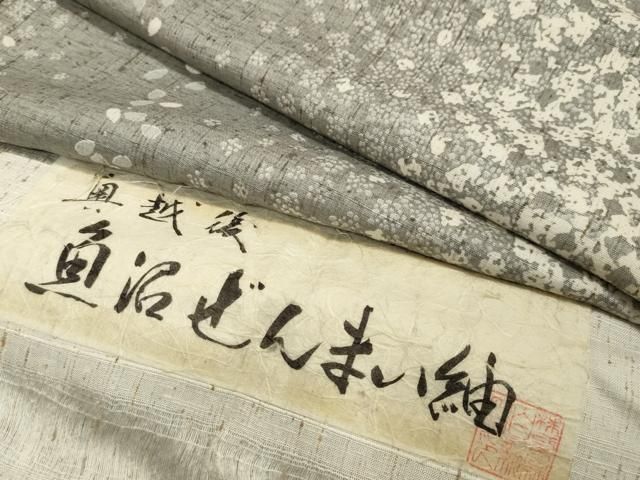 奥越後
魚沼ぜんまい紬